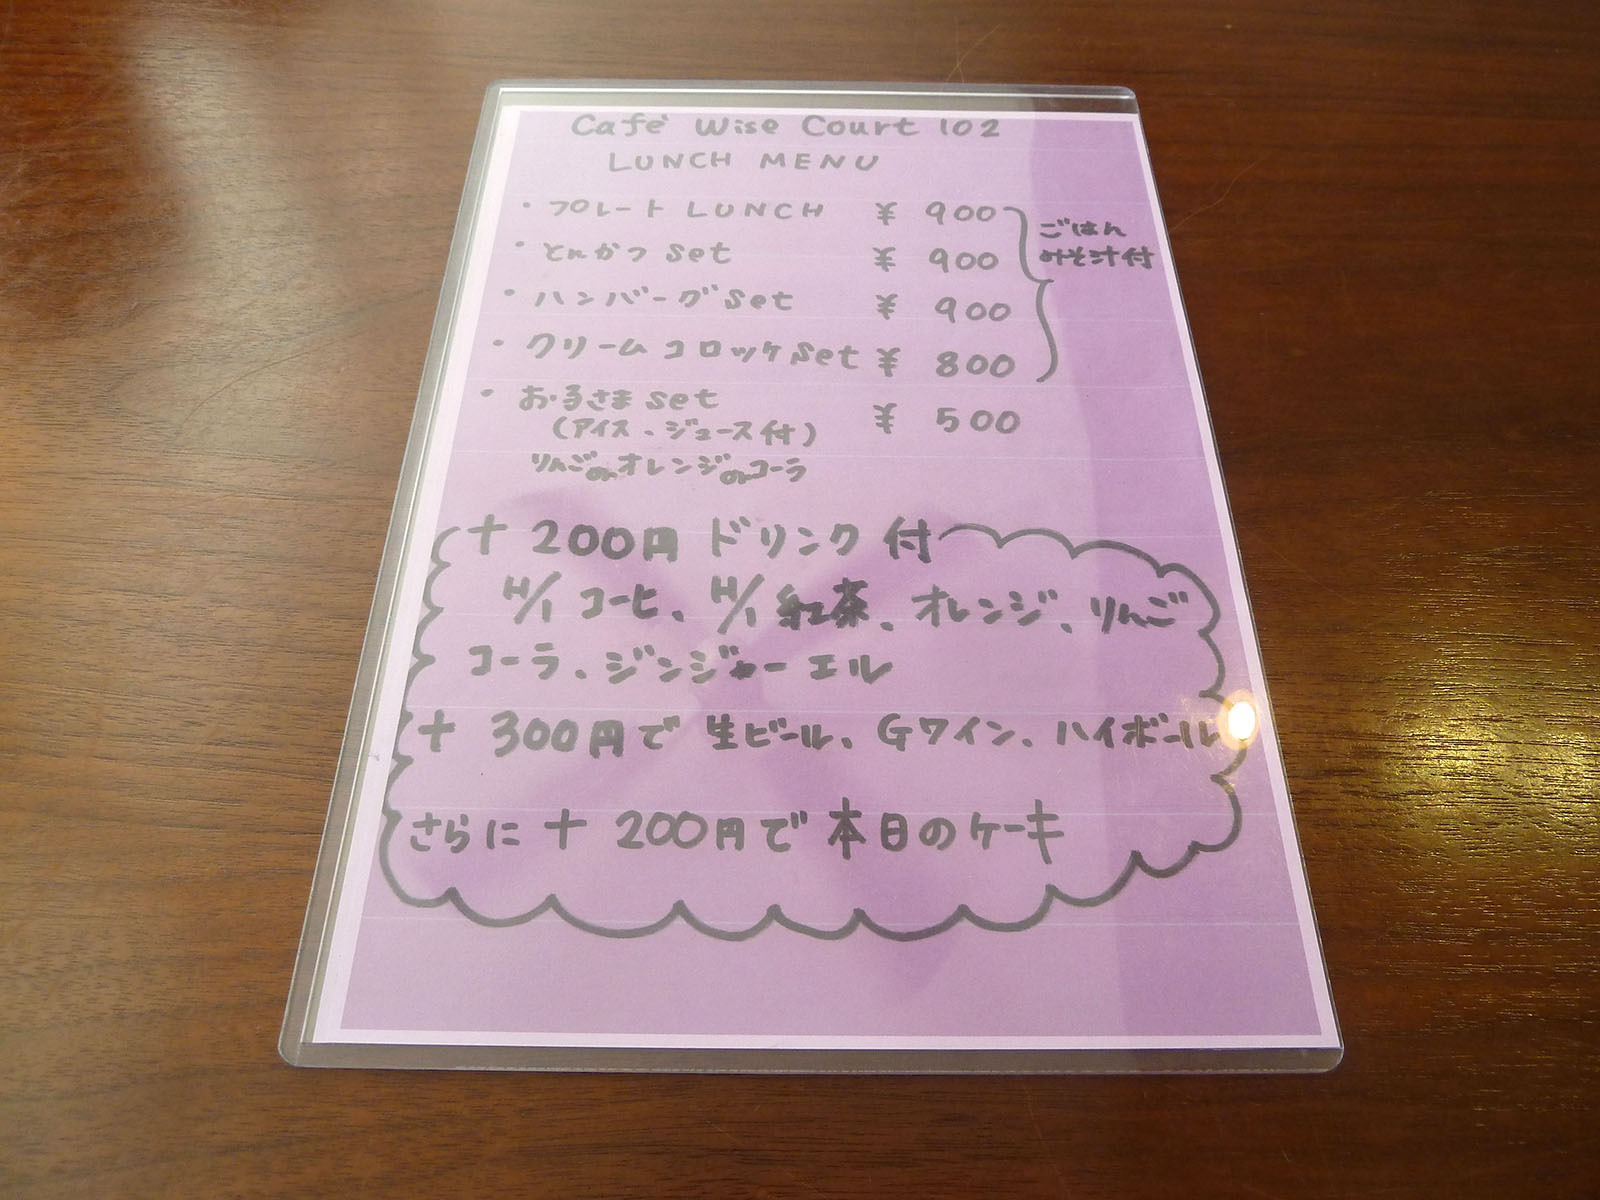 Café Wise Court 102
LUNCH MENU
・プレート LUNCH ¥ 900
・とんかつ Set ¥ 900
・ハンバーグ Set ¥ 900
・クリームコロッケ Set ¥ 800
ごはん
みそ汁付
・お子さま Set ¥ 500
(アイス、ジュース付)
りんごorオレンジorコーラ
+ 200円 ドリンク 付
H/I コーヒ、H/I 紅茶、オレンジ、りんご
コーラ、ジンジャーエル
+ 300円で 生ビール、Gワイン、ハイボール
さらに + 200円で 本日のケーキ